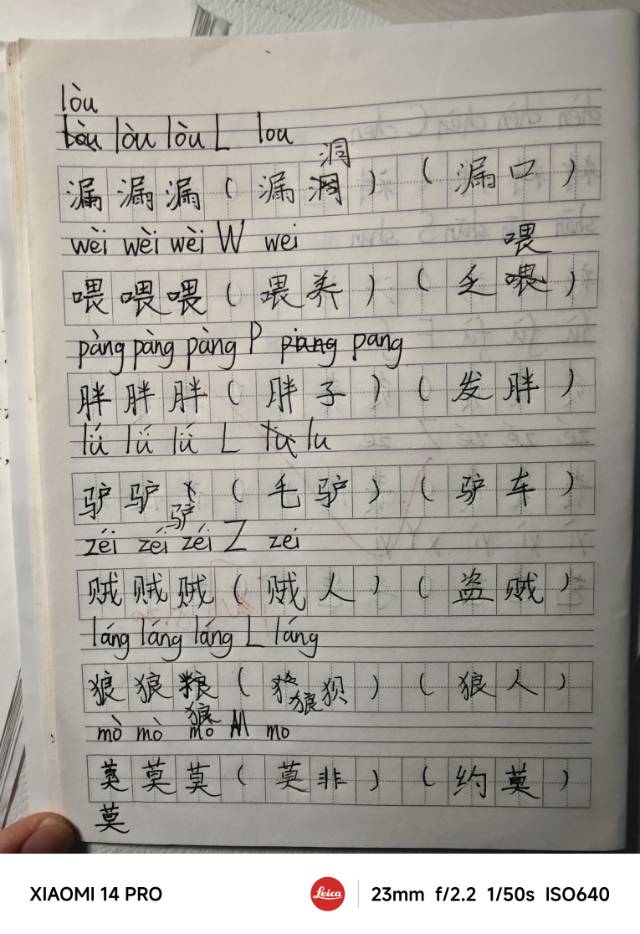 lòu
lòu lòu lòu L lou
洞
漏 漏 漏 ( 漏 洞 ) ( 漏 口 )
wèi wèi wèi W wei
喂
喂 喂 喂 ( 喂 养 ) ( 乏 喂 )
pàng pàng pàng P piang pang
胖 胖 胖 ( 胖 子 ) ( 发 胖 )
lǘ lǘ lǘ L lu
驴 驴 ( 毛 驴 ) ( 驴 车 )
驴
zéi zéi zéi Z zei
贼 贼 贼 ( 贼 人 ) ( 盗 贼 )
láng láng láng L láng
狼 狼 ( 狼 狈 ) ( 狼 人 )
狼
mò mò mò M mo
莫 莫 ( 莫 非 ) ( 约 莫 )
莫
XIAOMI 14 PRO
Leica
23mm f/2.2 1/50s ISO640